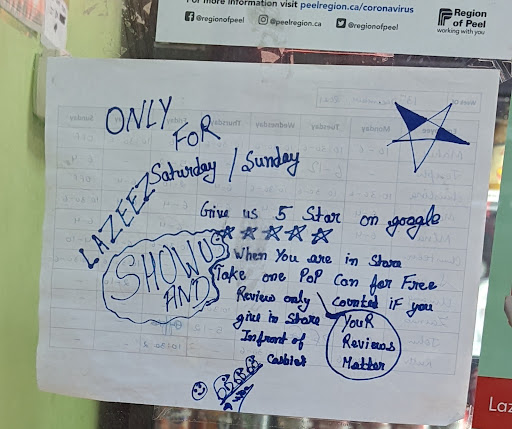 For more information visit peelregion.ca/coronavirus
@regionofpeel @peelregion.ca @regionofpeel
Region
of Peel
working with you
ONLY
FOR
LAZEEZ
Saturday / Sunday
Give us 5 Star on google
SHOW US
AND
When You are in Store
Take one PoP Can for Free
Review only counted if you
give in Store
Infront of
Cashier
YouR
Reviews
Matter
Laz